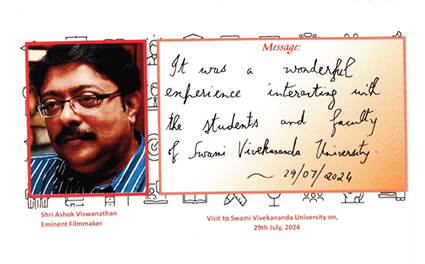 Message:
It was a wonderful
experience interacting with
the students and faculty
of Swami Vivekananda University.
~ 29/07/2024
Shri Ashok Viswanathan
Eminent Filmmaker
Visit to Swami Vivekananda University on,
29th July, 2024